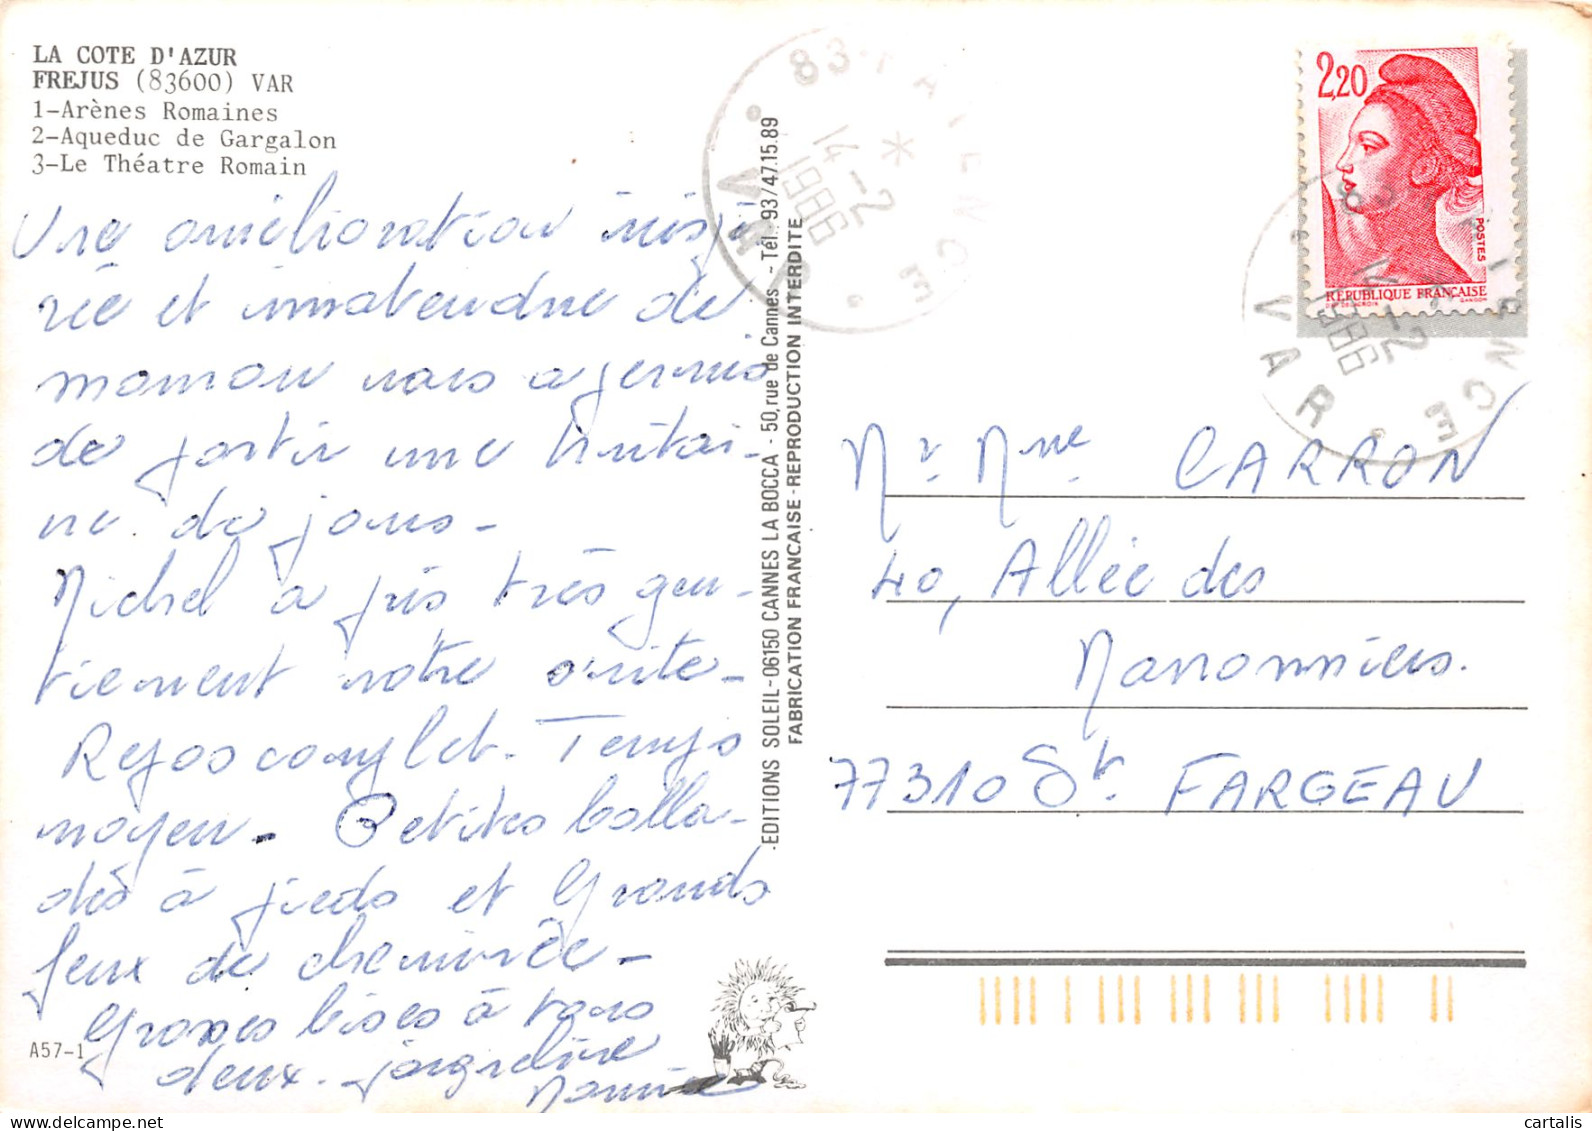 LA COTE D'AZUR
FREJUS (83600) VAR
1-Arènes Romaines
2-Aqueduc de Gargalon
3-Le Théatre Romain
Une amélioration inespé
rée et inatendue de
maman nous a permis
de partir une huitai-
ne de jours -
Michel a pris très gen-
tiement notre suite -
Repos complet - Temps
moyen - Petites balla-
des à pieds et Grands
feux de cheminée -
Grosses bises à vous
deux - Jacqueline
Maurice
A57-1
EDITIONS SOLEIL - 06150 CANNES LA BOCCA - 50, rue de Cannes - Tél. 93/47.15.89
FABRICATION FRANCAISE - REPRODUCTION INTERDITE
83 FAYENCE
14-2
1986
VAR
2,20
POSTES
REPUBLIQUE FRANÇAISE
83 FAYENCE
14-2
1986
VAR
Mr Mme CARRON
40, Allée des
Marronniers.
77310 St FARGEAU
cartalis